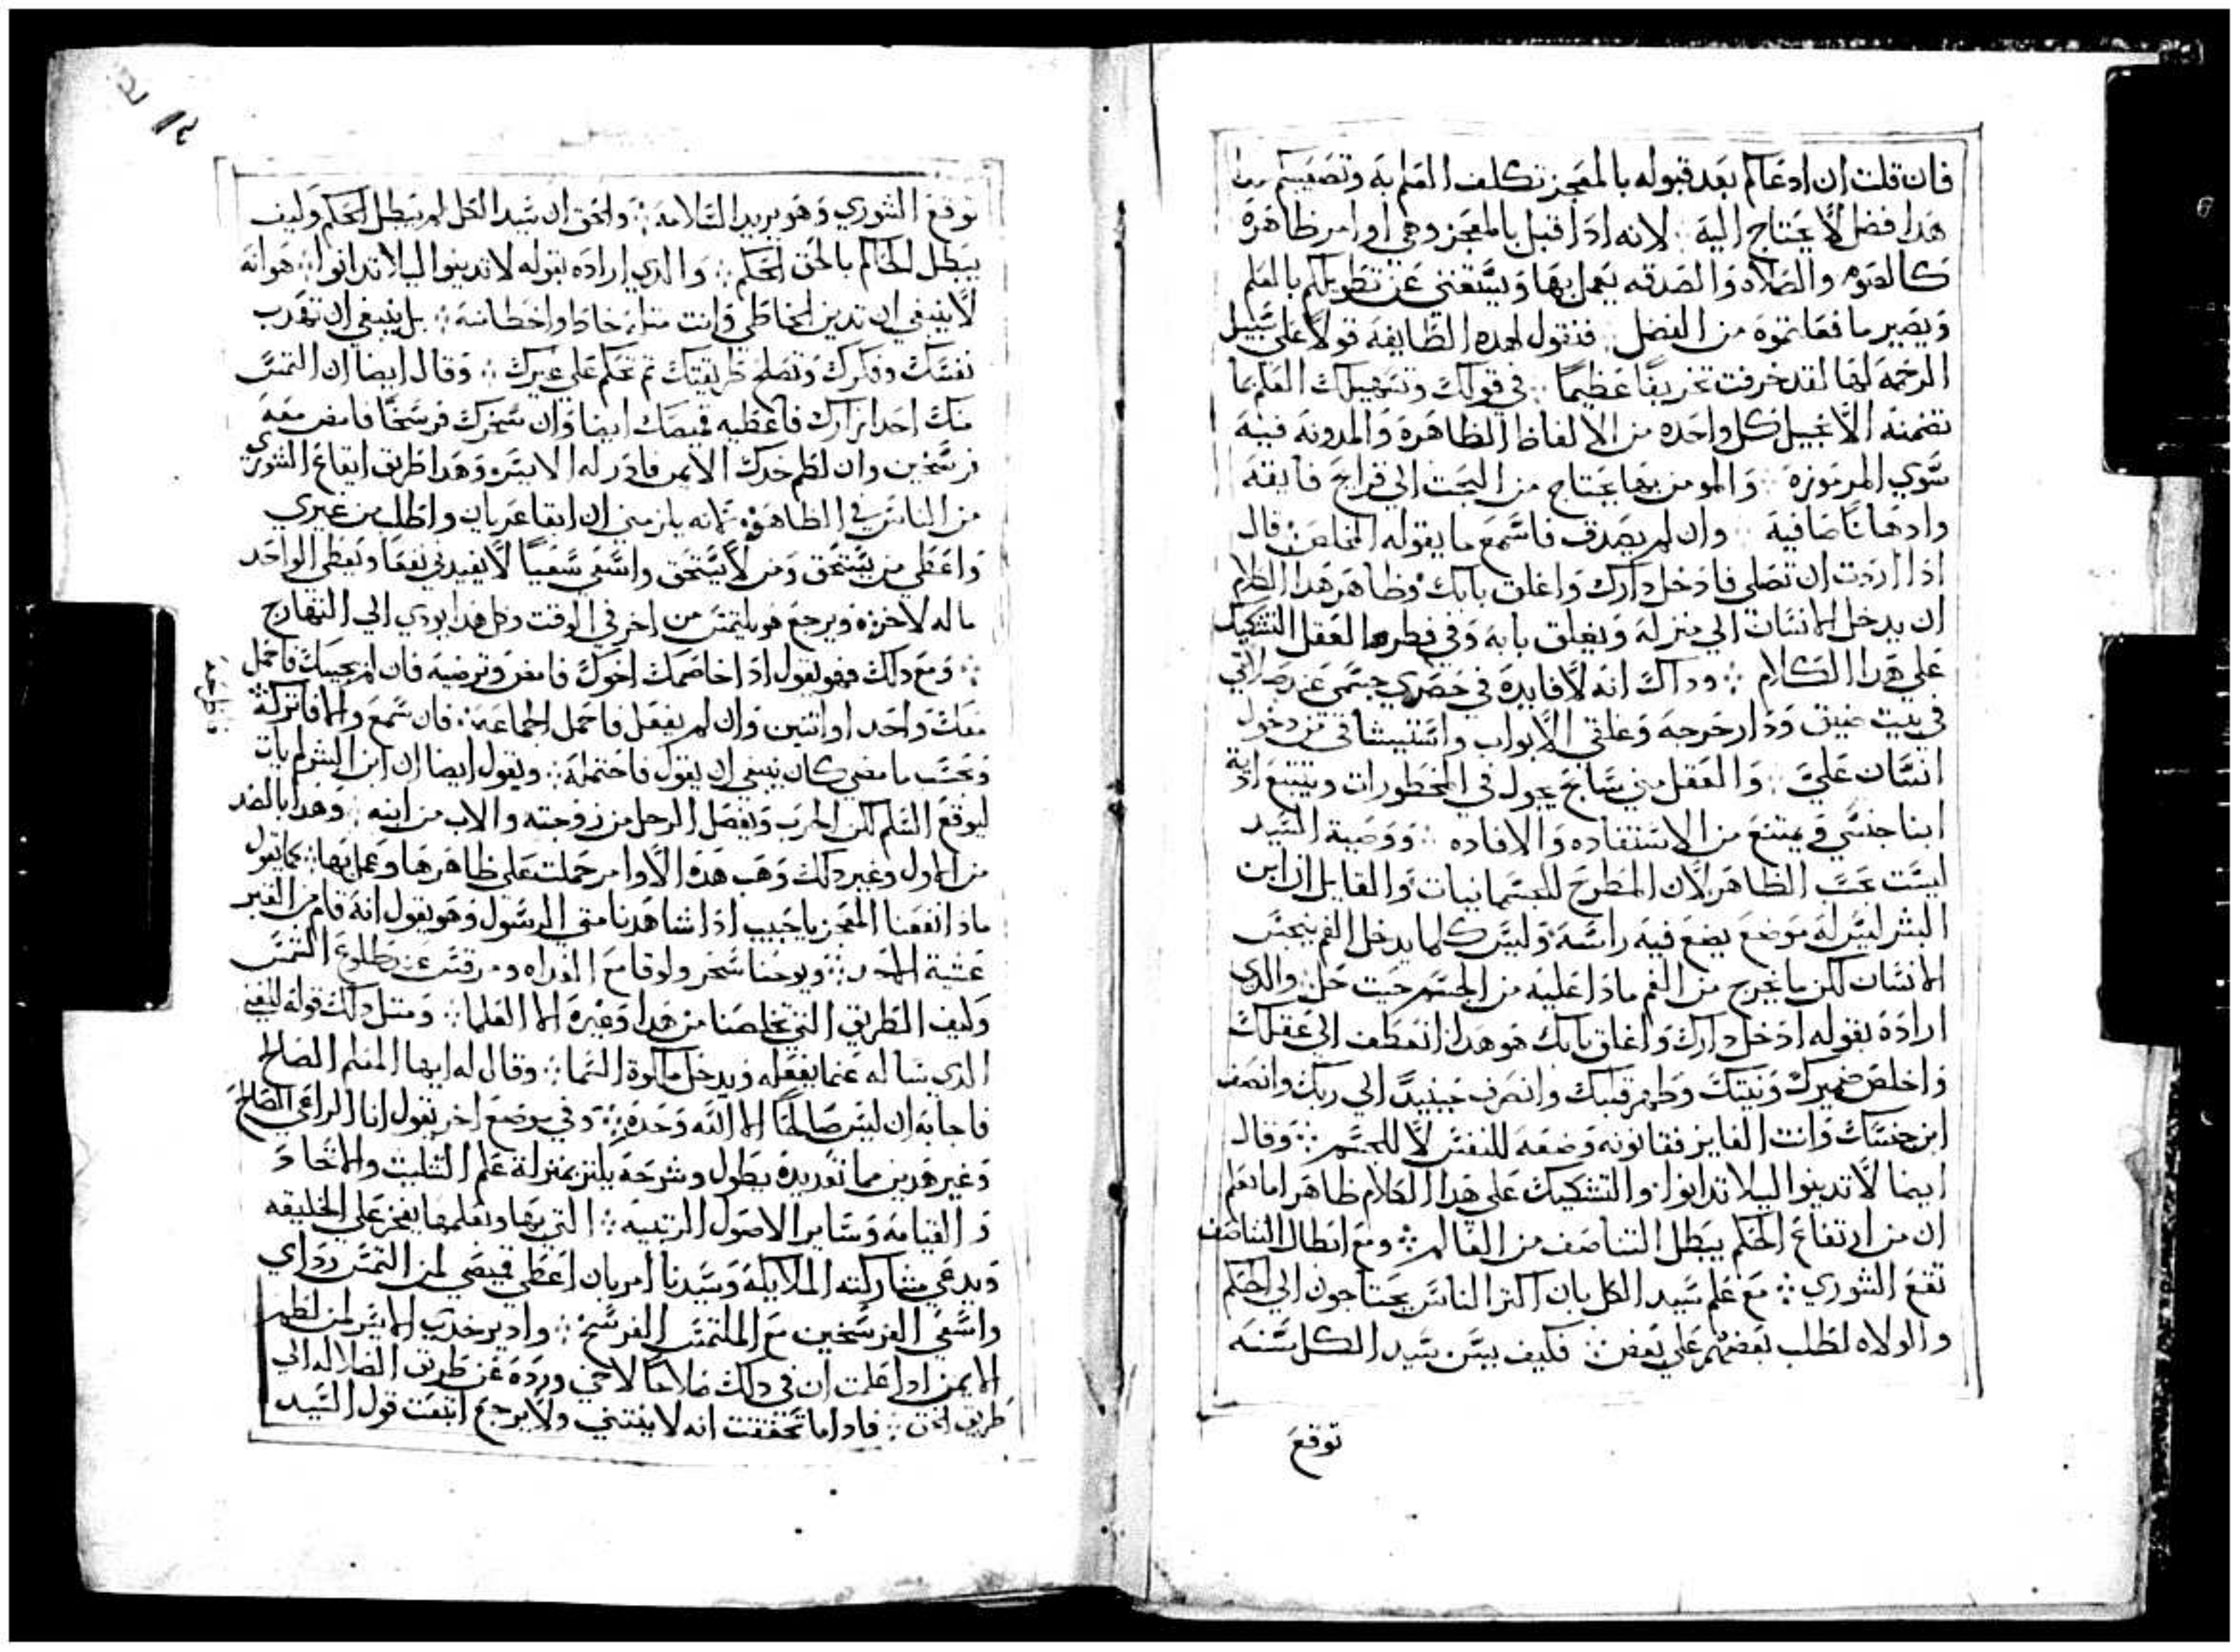 فان قلت ان ادعاكم بعد قبوله بالمعجز تكلف العلم به وتصعيبكم
هدا فضل لا يحتاج اليه ∴ لانه ادا قبل بالمعجز وهي اوامر ظاهرة
كالصوم والصلاه والصدقه يعمل بها ويستغني عن تطويلكم بالعلم
ويصير ما فعلتموه من الفضل ∴ فنقول لهده الطايفه قولا علي سبيل
الرحمه لها لقد خرفت تخريفا عظيما ∴ في قولك وتسهيلك العلم بما
تضمنه الانجيل كل واحده من الالفاظ الظاهرة والمدونه فيه
سوي المرموزه ∴ والمومن بها يحتاج من البحت الي قرايح فايقه
وادهانا صافية ∴ وان لم يصدق فاسمع ما يقوله المخلص قال
ادا اردت ان تصلي فادخل دارك واغلق بابك وظاهر هدا الكلام
ان يدخل الانسان الي منزله ويغلق بابه وفي فطر العقل التشكيك
علي هدا الكلام ∴ وداك انه لا فايدة في حصري جسمي عند صلاتي
في بيت ضيق ودار حرجه وغلقي الابواب واستيثاقي من دخول
انسان علي ∴ والعقل مني سابح يجول في المحظورات ويتتبع ادية
ابنا جنسي ويمتنع من الاستفاده والافاده ∴ ووصية السيد
ليست بحسب الظاهر لان المطرح للجسمانيات والقايل ان ابن
البشر ليس له موضع يضع فيه راسه وليس كلما يدخل الفم ينجس
الانسان لكن ما يخرج من الفم مادا عليه من الجسم حيت حل والدي
اراده بقوله ادخل دارك واغلق بابك هو هدا انعطف الي عقلك
واخلص ضميرك ونيتك وطهر قلبك وانصرف حينيد الي ربك وانصف
ابن جنسك وانت الفايز فقانونه وضعه للنفس لا للجسم ∴ وقال
ايضا لا تدينوا ليلا تدانوا والتشكيك علي هدا الكلام ظاهر اما تعلم
ان من ارتفاع الحكم يبطل التناصف من العالم ∴ ومع ابطال التناصف
تقع الشوري ∴ مع علم سيد الكل بان اكتر الناس يحتاجون الي الحكم
والولاه لطلب بعضهم علي بعض ∴ فكيف يسن سيد الكل سنه
توقع
توقع الشوري وهو يريد السلامة ∴ والحق ان سيد الكل لم يبطل الحكم وكيف
يبطل الحاكم بالحق الحكم ∴ والدي اراده بقوله لا تدينوا ليلا تدانوا ∴ هو انه
لا ينبغي ان تدين الخاطي وانت متله خاط واخطا منه ∴ بل ينبغي ان تهدب
نفسك وفكرك وتصلح طريقتك تم تحكم علي غيرك ∴ وقال ايضا ان التمس
منك احد ازارك فاعطيه قميصك ايضا وان سخرك فرسخا فامض معه
فرسخين وان لطم خدك الايمن فادر له الايسر وهدا طريق ايقاع الشوري
من الناس في الظاهر لانه يلزمني ان ابقا عريان واطلب من غيري
واعطي من يستحق ومن لا يستحق واسعي سعيا لا يفيدني نفعا ويعطي الواحد
ما له لاخره ويرجع هو يلتمس من اخر في الوقت وكل هدا يودي الي التهارج
∴ ومع دلك فهو يقول ادا خاصمك اخوك فامض وترضيه فان لم يجيبك فاحمل
معك واحد او اتنين وان لم يفعل فاحمل الجماعة ∴ فان سمع والا فاتركه
وبحسب ما مضي كان ينبغي ان يقول فاحتمله ∴ ويقول ايضا ان ابن البشر لم يات
ليوقع السلم لكن الحرب ويفصل الرجل من زوجته والاب من ابنه ∴ وهدا بالضد
من الاول وغير دلك وهب هده الاوامر حملت علي ظاهرها وعمل بها ∴ كما تقول
مادا نفعنا المعجز يا حبيب ادا شاهدنا متي الرسول وهو يقول انه قام من القبر
عشية الاحد ∴ ويوحنا سحر ولوقا مع الغداه ومرقس عند طلوع الشمس
وكيف الطريق التي تخلصنا من هدا وغيره الا العلما ∴ ومتل دلك قوله للغني
الدي ساله عما يفعله ويدخل ملكوة السما ∴ وقال له ايها المعلم الصالح
فاجابه ان ليس صالحا الا الله وحده ∴ وفي موضع اخر يقول انا الراعي الصالح
وغير هدين مما تعديده يطول وشرحه يلتزم بمنزلة علم التتليت والاتحاد
و القيامة وساير الاصول الرتيبه ∴ التي بها وبعلمها يفخر علي الخليقه
ويدعي مشاركته الملايكة وسيدنا امر بان اعطي قميصي لمن التمس رداي
واسعي الفرسخين مع الملتمس الفرسخ ∴ وادير خدي الايسر لمن لطم
الايمن ادا علمت ان في دلك صلاحا لاخي ورده عن طريق الضلاله الي
طريق الحق ∴ فادا ما تحققت انه لا ينتني ولا يرجع اتبعت قول السيد